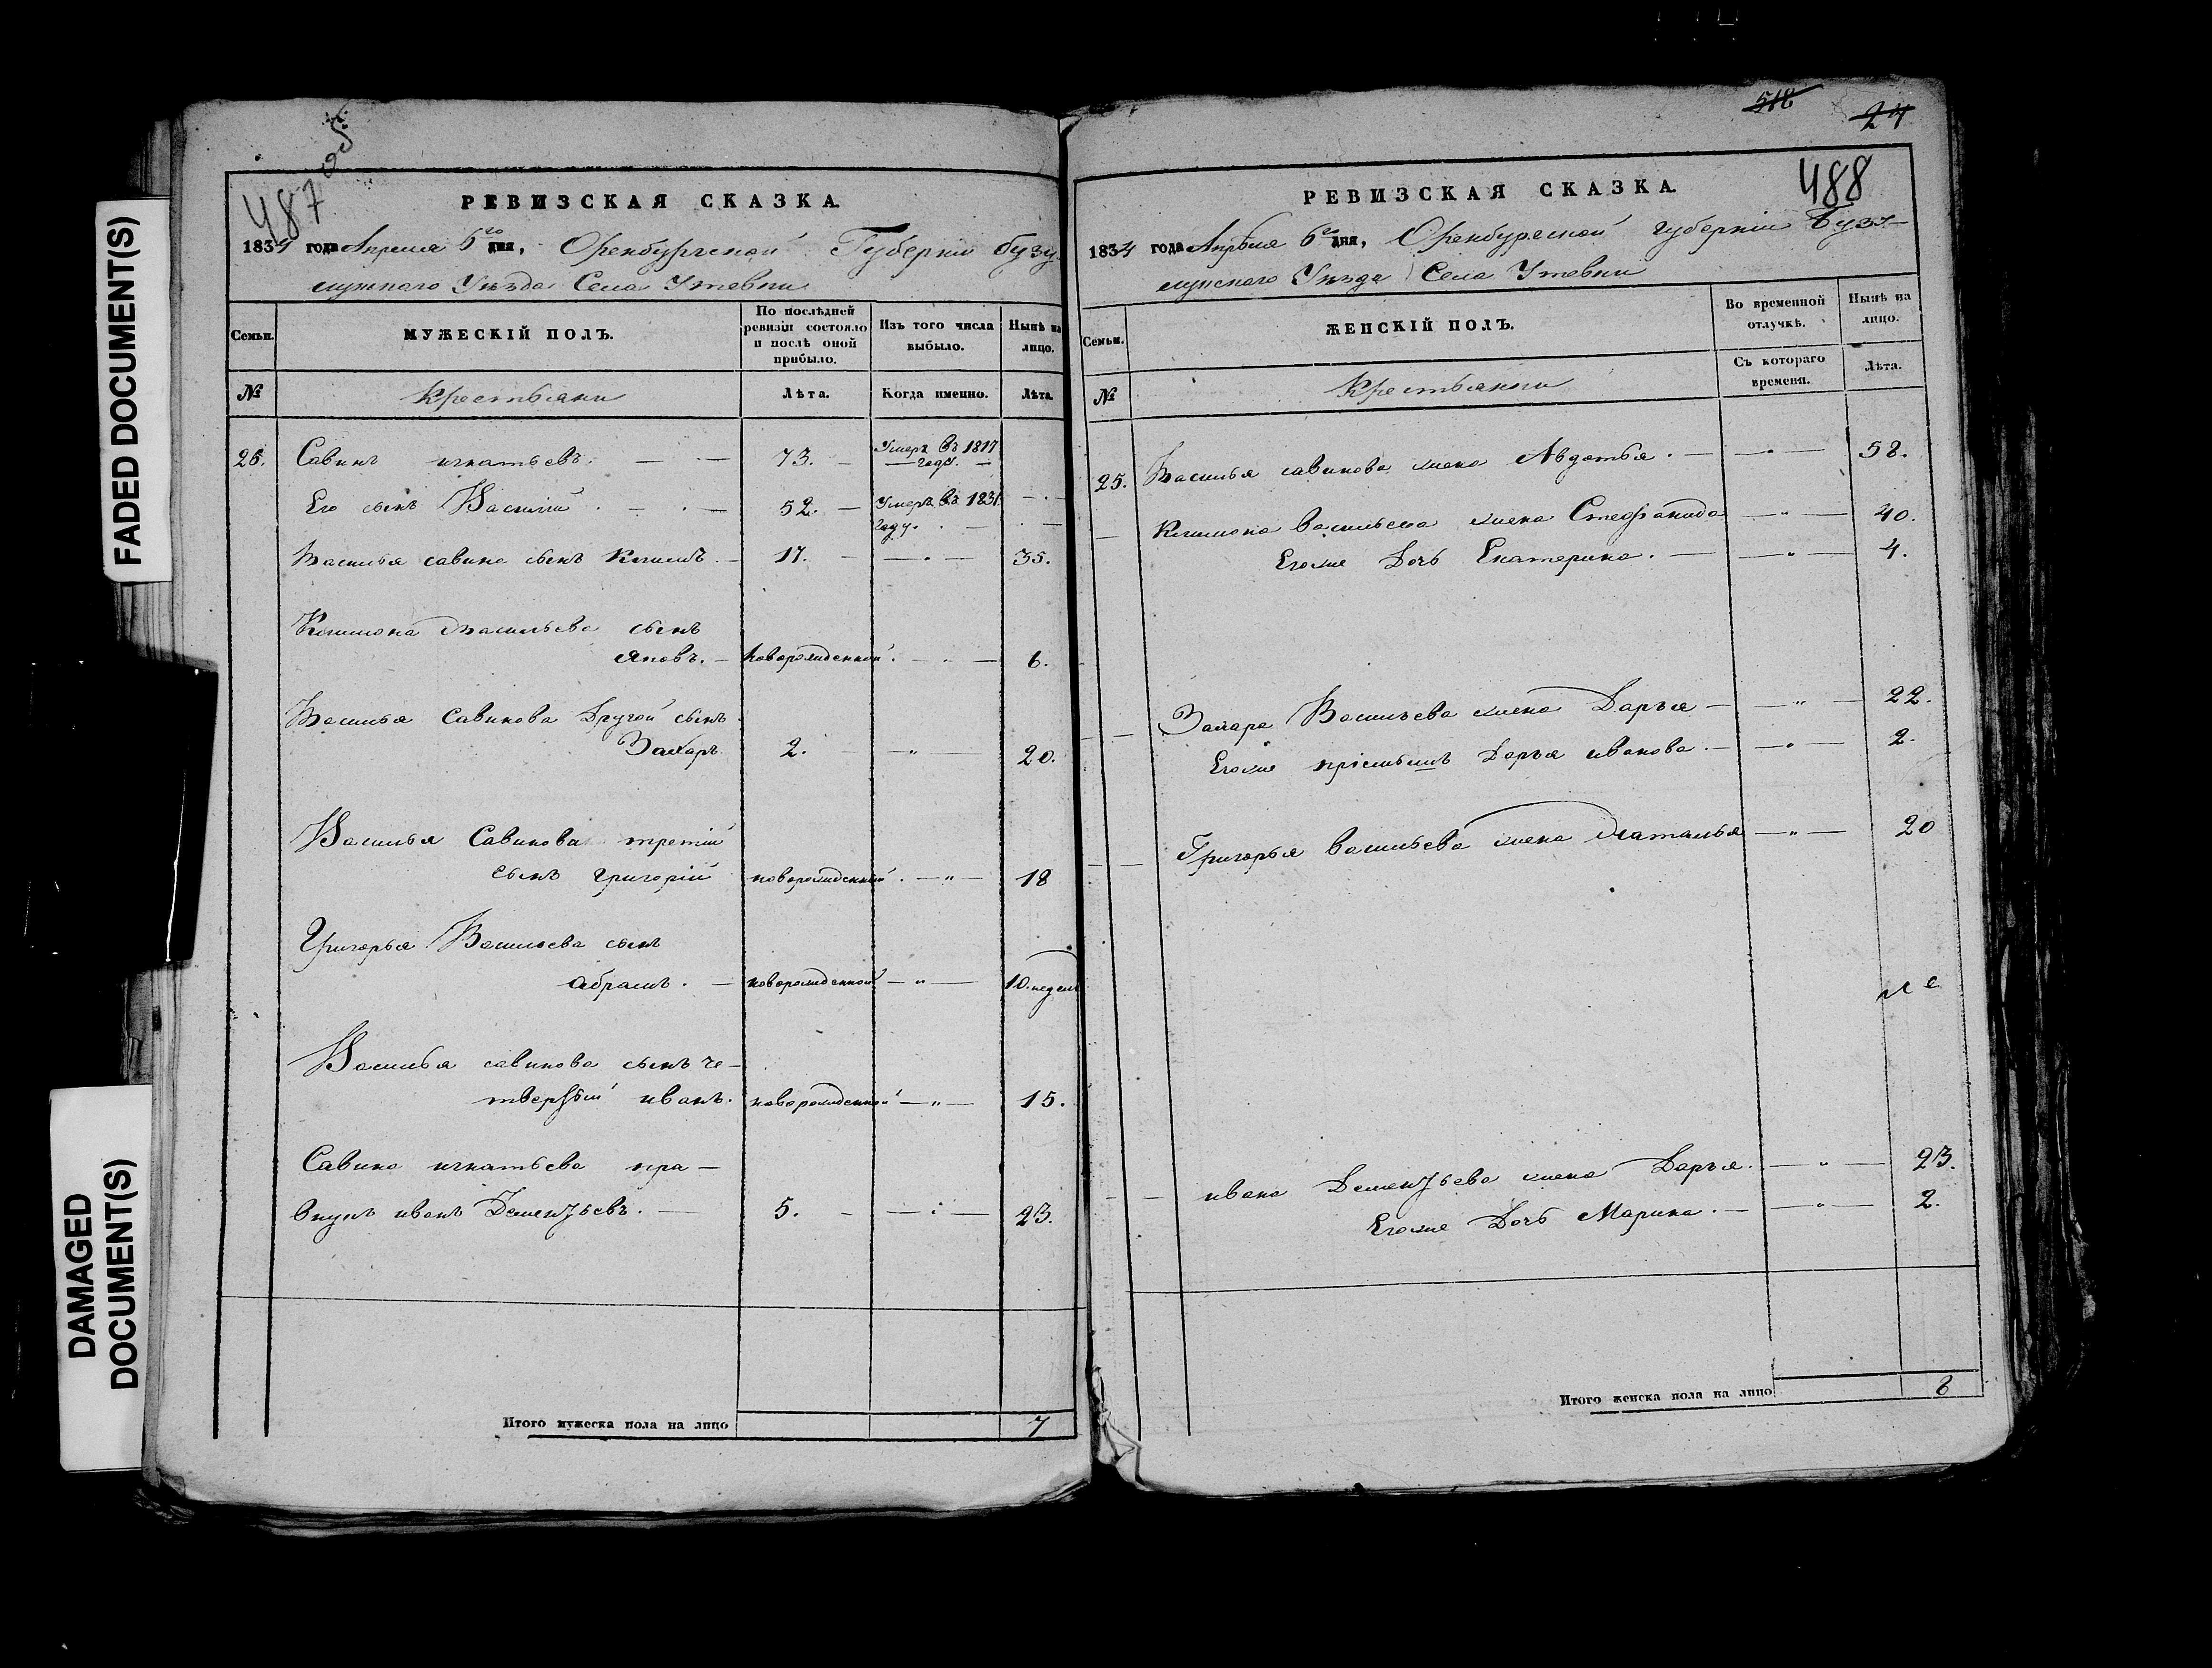 FADED DOCUMENT(S)
DAMAGED
DOCUMENT(S)
487
РЕВИЗСКАЯ СКАЗКА.
1834 года Апреля 6го дня, Оренбургской Губернiи бузу
лукского Уѣзда Села Утевки
Семьи. МУЖЕСКІЙ ПОЛЪ. По послѣдней ревизіи состояло и послѣ оной прибыло. Изъ того числа выбыло. Нынѣ на лицо.
№ Крестьяни Лѣта. Когда именно. Лѣта.
Савинъ игнатьевъ. 73. Умеръ въ 1817 годе.
Его сынъ Василій 52. Умеръ въ 1831 году.
Василья савина сынъ 17. 35.
Васильева сынъ
яковъ. новорожденной. 6.
Василья Савинова Другой сынъ
Захаръ 2. 20.
Василья Савинова третій
сынъ григорій новорожденный. 18
Григорья Васильева сынъ
абрамъ. новорожденной 10. недель
Василья савинова сынъ че-
твертый иванъ. новорожденной 15.
Савина игнатьева пра-
внукъ иванъ Дементьевъ. 5. 23.
Итого мужеска пола на лицо 7
518 24
488
РЕВИЗСКАЯ СКАЗКА.
1834 года Апреля 6го дня, Оренбургской губерніи Бузу-
лукского Уѣзда Села Утевки
Семьи. ЖЕНСКІЙ ПОЛЪ. Во временной отлучкѣ. Нынѣ на лицо.
Съ котораго времени. Лѣта.
№ Крестьянки
25. Василья савинова жена Авдотья. 58.
васильева жена Стефанида 40.
Егоже Дочь Екатерина. 4.
Захара Васильева жена Дарья 22.
Егоже Дарья иванова. 2.
Григорья васильева жена Наталья 20
ивана Дементьева жена Дарья. 23.
Егоже Дочь Марина. 2.
Итого женска пола на лицо 8